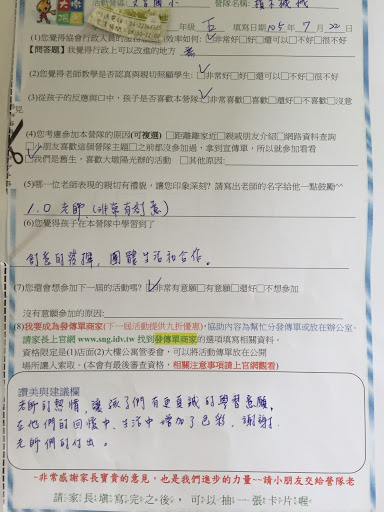 文昌國小 營隊名稱: 積木機械
年級 五 填寫日期105年7月22日
(1)您覺得協會行政人員的 效率如何:☑非常好□好□還可以□不好□很不好
【問答題】我覺得行政上可以改進的地方 無
(2)您覺得老師教學是否認真與親切照顧學生:☑非常好□好□還可以□不好□很不好
(3)從孩子的反應與口中,孩子是否喜歡本營隊☑非常喜歡□喜歡□不喜歡□沒意
見
(4)您考慮參加本營隊的原因(可複選) □距離離家近□親戚朋友介紹□網路資料查詢
☑小朋友喜歡這個營隊主題□之前都沒參加過,拿到宣傳單,所以就參加看看
□我們是舊生,喜歡大墩陽光辦的活動 □其他原因:
(5)哪一位老師表現的親切有禮貌,讓您印象深刻? 請寫出老師的名字給他一點鼓勵^^
1.0 老師.(非常有創意)
(6)您覺得孩子在本營隊中學習到了
創意的發揮,團體生活和合作。
(7)您還會想參加下一屆的活動嗎?☑非常有意願□有意願□還好□不想參加
沒有意願參加的原因:
(8)我要成為發傳單商家(下一屆活動提供九折優惠),協助內容為幫忙分發傳單或放在辦公室.
請家長上官網 www.sng.idv.tw 找到發傳單商家的選項填寫相關資料.
資格限定是(1)店面(2)大樓公寓管委會,可以將活動傳單放在公開
場所讓人索取。(本會有最後審查資格,相關注意事項請上官網觀看)
讚美與建議欄
老師的熱情,讓孩子們有更真誠的學習意願,
在他們的回憶中、生活中增加了色彩,謝謝
老師們的付出。
~非常感謝家長寶貴的意見,也是我們進步的力量~~請小朋友交給營隊老
請家長填寫完之後,可以抽一張卡片喔